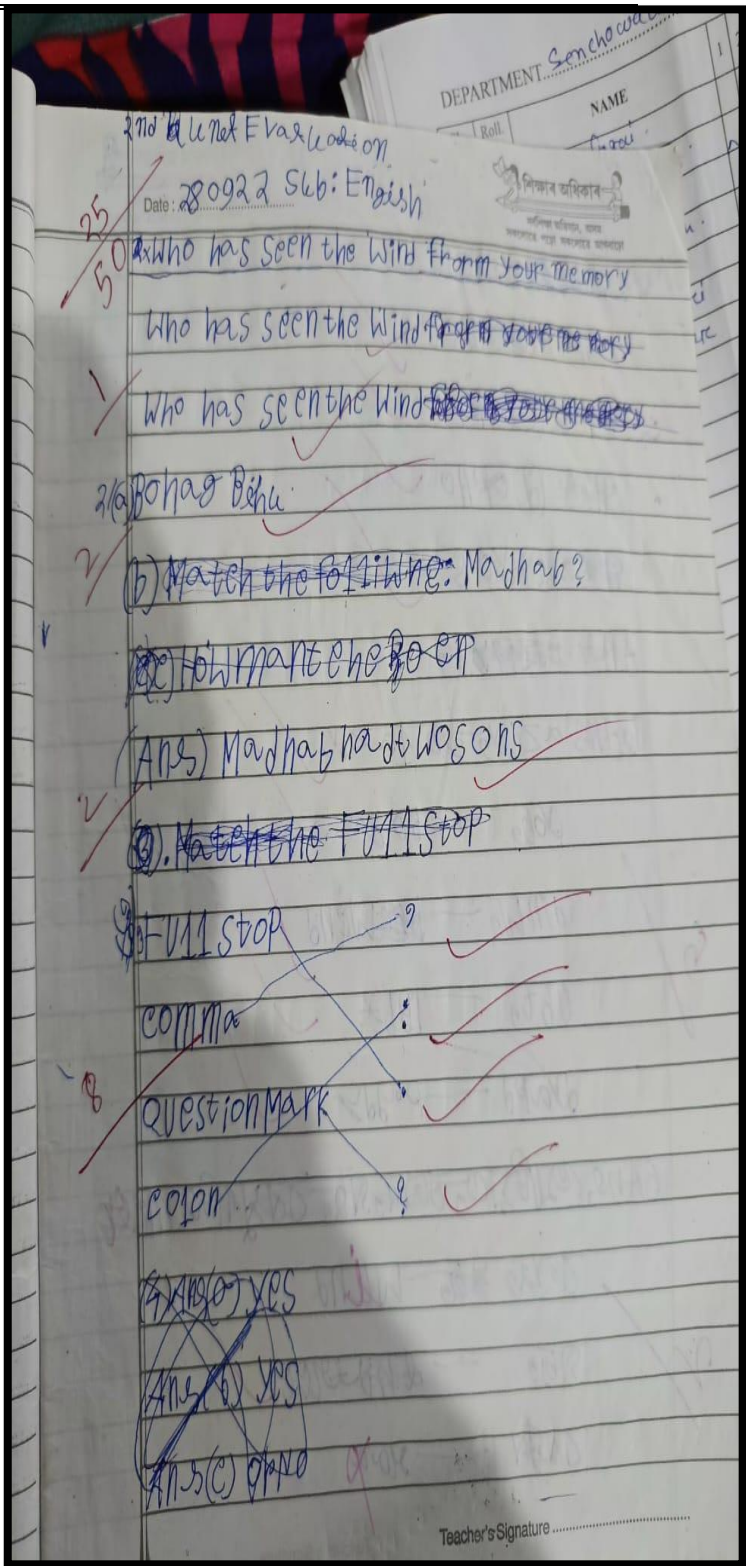 DEPARTMENT Senchowa
NAME
Roll
1
2nd Unet Evaluation
শিক্ষাৰ অধিকাৰ
Date: 280922 Sub: Engish
25
50
1x Who has seen the Wind fhorm your memory
Who has seen the Wind
1
Who has seen the Wind
2(a) Bohag Bihu
2
(b) Match the folliwng: Madhab?
(c) How mant ehe
(Ans) Madhab hadt wo sons
2
(3). Match the Full stop
3) Full stop ?
comma :
8
Question Mark .
colon ?
(4) Ans(a) Yes
Ans (b) Yes
Ans (c)
Teacher's Signature